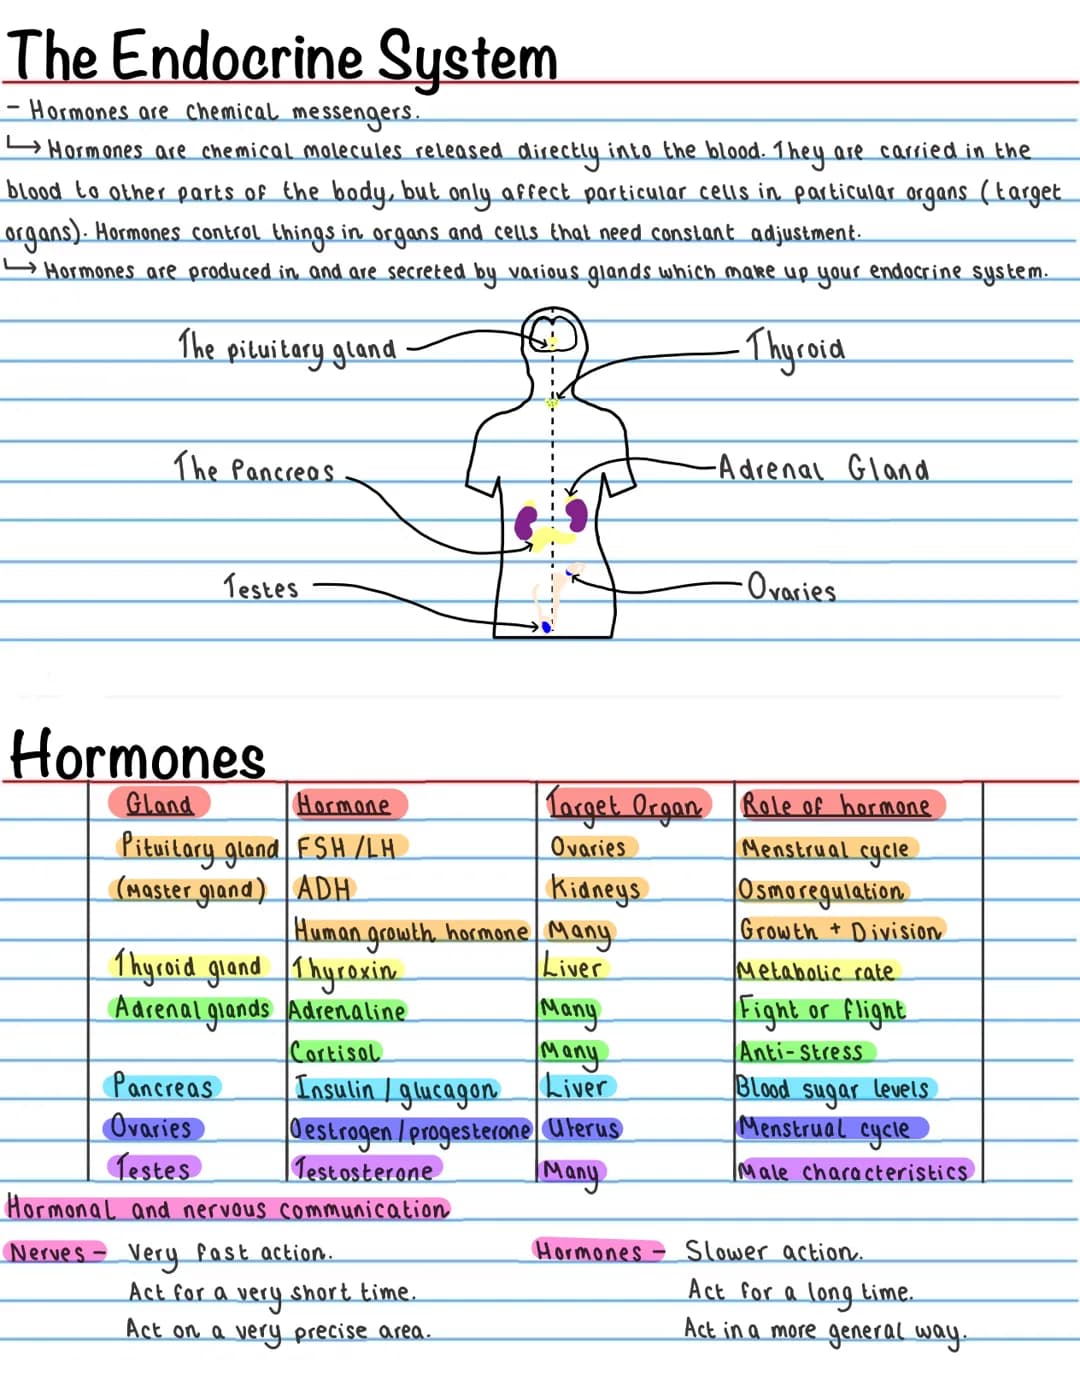 The Endocrine System
- Hormones are chemical messengers.
↳ Hormones are chemical molecules released directly into the blood. They are carried in the
blood to other parts of the body, but only affect particular cells in particular organs (target
organs). Hormones control things in organs and cells that need constant adjustment.
↳ Hormones are produced in and are secreted by various glands which make up your endocrine system.
The pituitary gland
Thyroid
The Pancreas
Adrenal Gland
Testes
Ovaries
Hormones
Gland Hormone Target Organ Role of hormone
Pituitary gland FSH / LH Ovaries Menstrual cycle
(Master gland) ADH Kidneys Osmoregulation
Human growth hormone Many Growth + Division
Thyroid gland Thyroxin Liver Metabolic rate
Adrenal glands Adrenaline Many Fight or flight
Cortisol Many Anti-stress
Pancreas Insulin / glucagon Liver Blood sugar levels
Ovaries Oestrogen / progesterone Uterus Menstrual cycle
Testes Testosterone Many Male characteristics
Hormonal and nervous communication
Nerves - Very fast action. Hormones - Slower action.
Act for a very short time. Act for a long time.
Act on a very precise area. Act in a more general way.